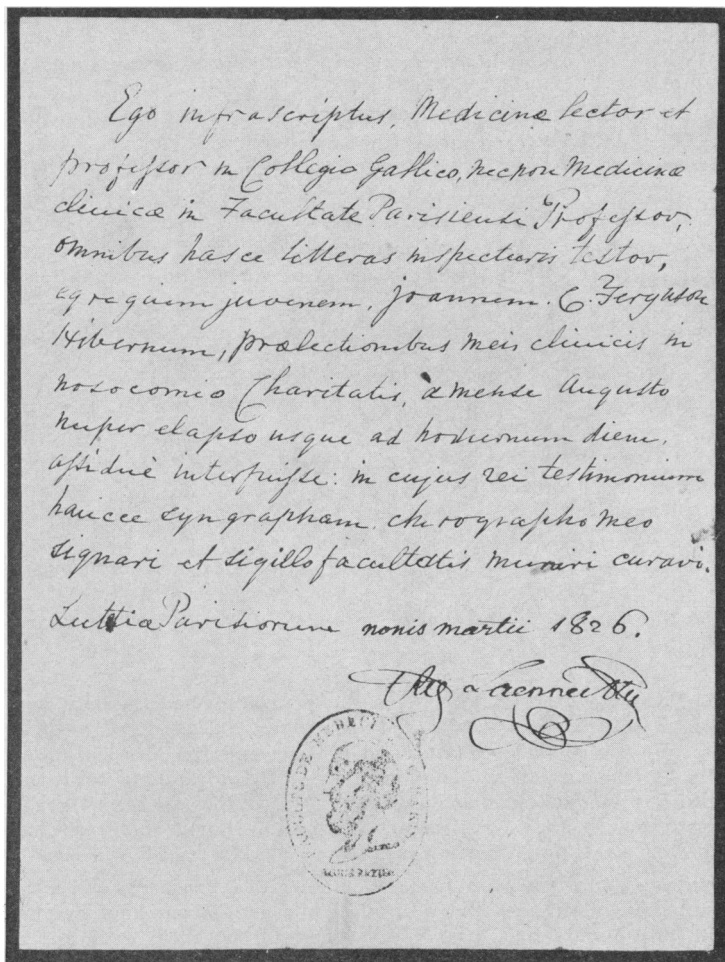 Ego infrascriptus, Medicinæ lector et
professor in Collegio Gallico, necnon Medicinæ
clinicæ in Facultate Parisiensi Professor,
omnibus hasce litteras inspecturis testor,
egregium juvenem, Joannem. C. Ferguson
Hibernum, prælectionibus meis clinicis in
nosocomio Charitatis, à mense Augusto
nuper elapso usque ad hodiernum diem,
assiduè interfuisse: in cujus rei testimonium
hancce syngrapham chirographo meo
signari et sigillo facultatis muniri curavi.
Lutetiæ Parisiorum nonis martii 1826.
Laennec
DE MEDECI